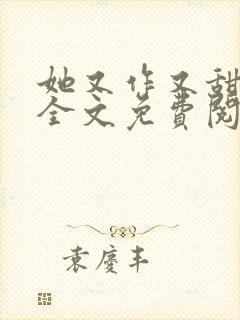 她又作又甜
全文免费阅
袁庆丰